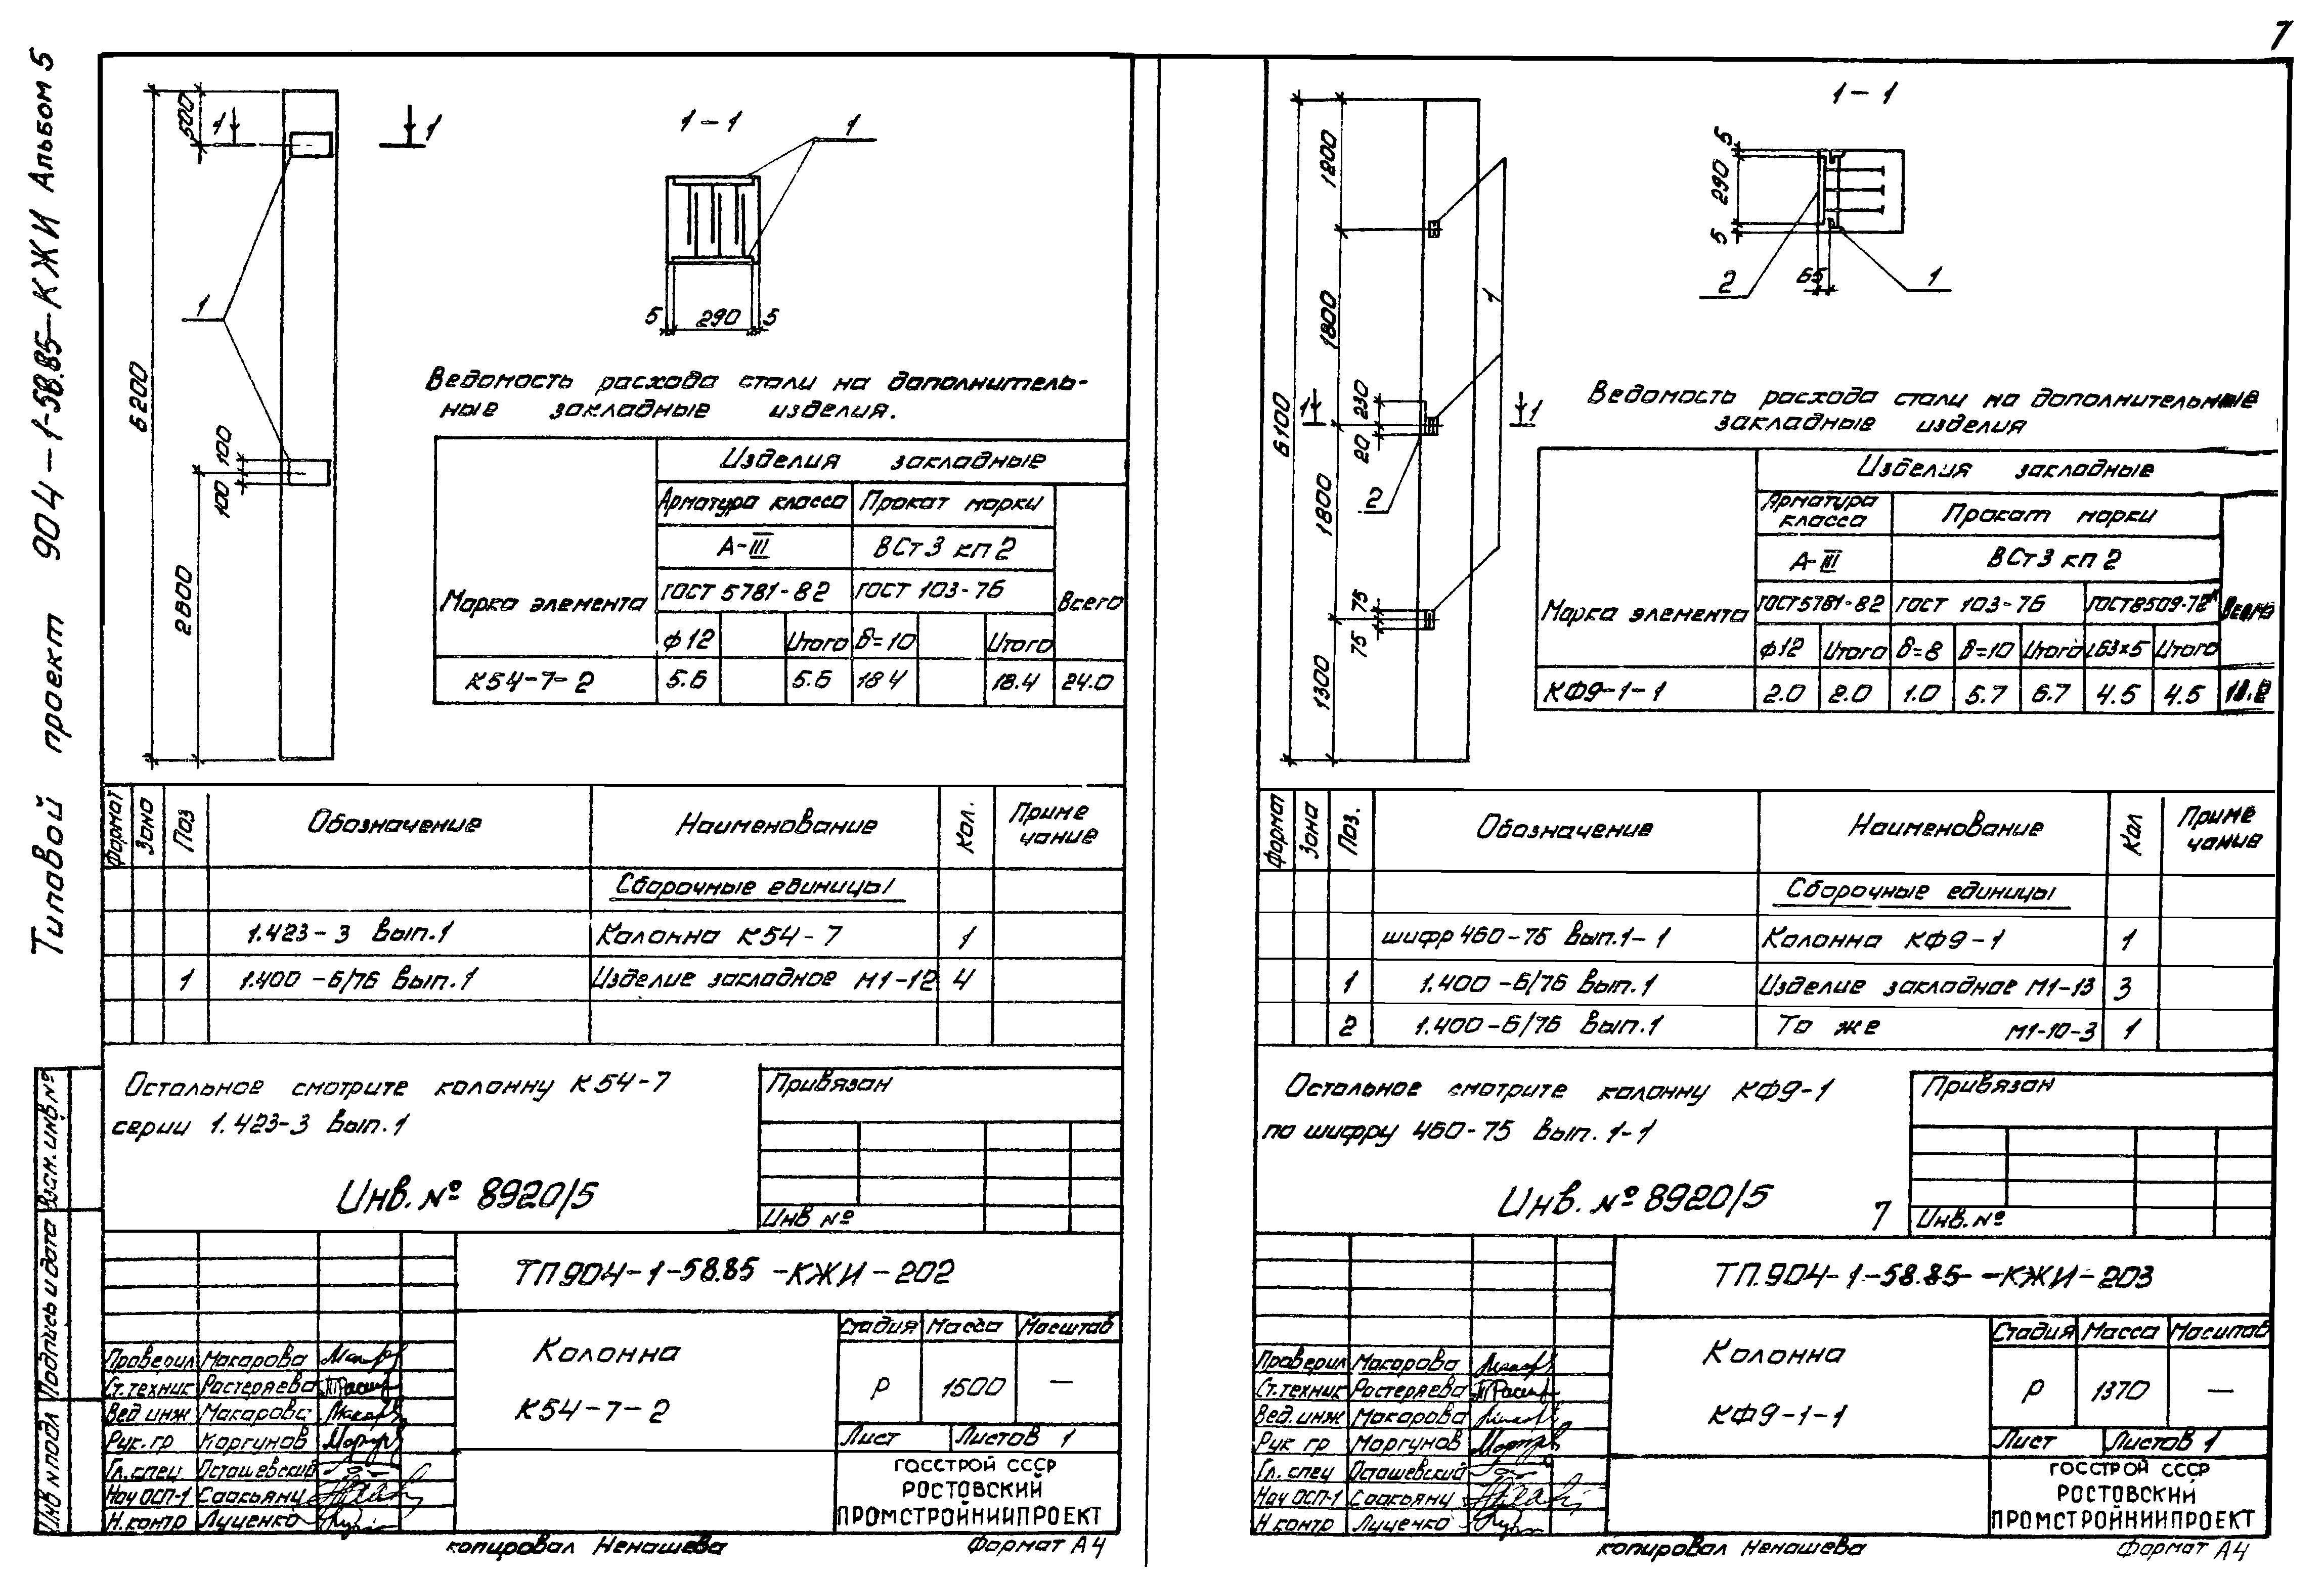 7
Типовой проект 904-1-58.85-КЖИ Альбом 5
500
1
1
6200
1
100
100
2800
1-1
1
5 290 5
Ведомость расхода стали на дополнитель-
ные закладные изделия.
Марка элемента
Изделия закладные
Арматура класса
Прокат марки
Всего
А-III
ВСт3 кп2
ГОСТ 5781-82
ГОСТ 103-76
ф12 Итого δ=10 Итого
К54-7-2 5.6 5.6 18.4 18.4 24.0
Формат Зона Поз Обозначение Наименование Кол. Приме
чание
Сборочные единицы
1.423-3 Вып.1 Колонна К54-7 1
1 1.400-6/76 Вып.1 Изделие закладное М1-12 4
Остальное смотрите колонну К54-7
серии 1.423-3 Вып.1
Инв. № 8920/5
Привязан
Инв №
ТП904-1-58.85-КЖИ-202
Колонна
К54-7-2
Стадия Масса Масштаб
Р 1500 —
Лист Листов 1
ГОССТРОЙ СССР
РОСТОВСКИЙ
ПРОМСТРОЙНИИПРОЕКТ
Проверил Макарова
Ст.техник Растеряева
Вед инж Макарова
Рук.гр Моргунов
Гл.спец Осташевский
Нач ОСП-1 Саакьянц
Н.контр Луценко
Взам. инв №
Подпись и дата
Инв № подл
копировал Ненашева
Формат А4
1800
1800
1800
1300
6100
1
1
230
20
2
75
75
1
1-1
5
290
5
65
2
1
Ведомость расхода стали на дополнительные
закладные изделия
Марка элемента
Изделия закладные
Арматура
класса
Прокат марки
Всего
А-III
ВСт3 кп2
ГОСТ5781-82 ГОСТ 103-76 ГОСТ8509-72*
ф12 Итого δ=8 δ=10 Итого L63×5 Итого
КФ9-1-1 2.0 2.0 1.0 5.7 6.7 4.5 4.5
Формат Зона Поз. Обозначение Наименование Кол Приме
чание
Сборочные единицы
шифр 460-75 Вып.1-1 Колонна КФ9-1 1
1 1.400-6/76 Вып.1 Изделие закладное М1-13 3
2 1.400-6/76 Вып.1 То же М1-10-3 1
Остальное смотрите колонну КФ9-1
по шифру 460-75 Вып. 1-1
Инв. № 8920/5
7
Привязан
Инв. №
ТП.904-1-58.85-КЖИ-203
Колонна
КФ9-1-1
Стадия Масса Масштаб
Р 1370 —
Лист Листов 1
ГОССТРОЙ СССР
РОСТОВСКИЙ
ПРОМСТРОЙНИИПРОЕКТ
Проверил Макарова
Ст.техник Растеряева
Вед.инж Макарова
Рук гр Моргунов
Гл.спец Осташевский
Нач ОСП-1 Саакьянц
Н.контр Луценко
копировал Ненашева
Формат А4